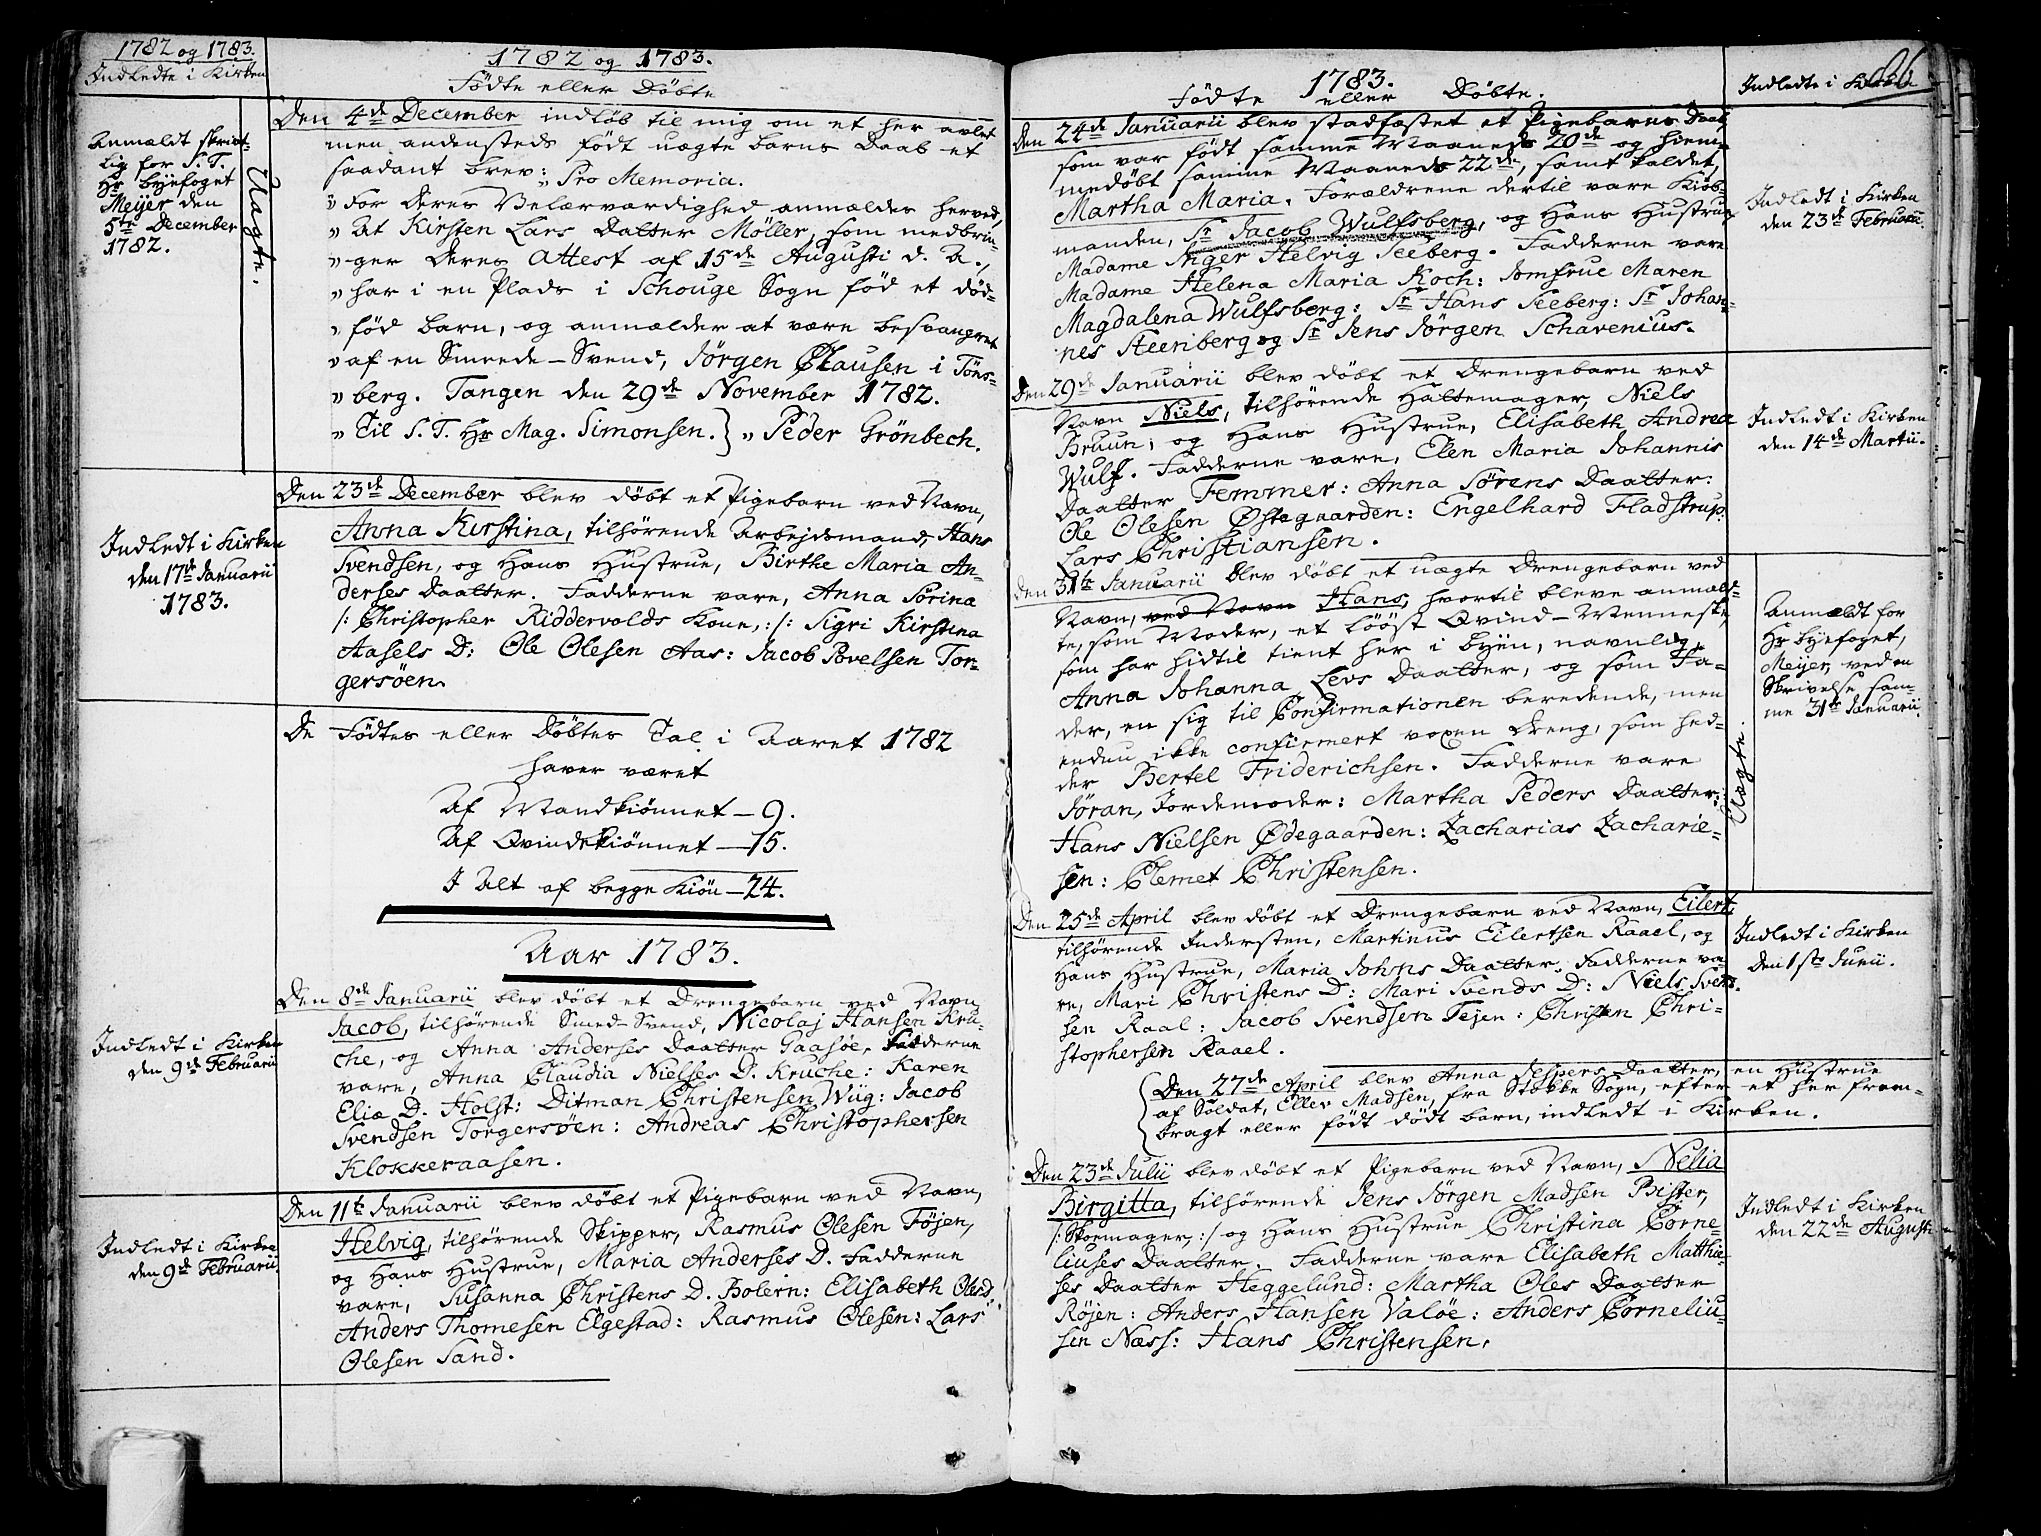 1782 og 1783.
Indledte i Kirken
1782 og 1783.
Födte eller Döbte
Anmældt skrivt-
lig for S. T.
Hr Byefoget
Meijer den
5te December
1782.
Uægte.
Den 4de December indlöb til mig om et her avlet
men andensteds födt uægte barns Daab et
saadant brev: „ Pro Memoria.
„ For Deres Velærværdighed anmeldes herved,
„ At Kirsten Lars Datter Möller, som medbrin-
„ ger Deres Attest af 15de Augusti d. A.,
„ har i en Plads i Schouge Sogn föd et död-
„ föd barn, og anmælder at være besvangret
„ af en Smede-Svend, Jörgen Clausen i Töns-
„ berg. Tangen den 29de November 1782.
„ Til S. T. Hr Mag. Simonsen. } „ Peder Grönbech.
Indledt i Kirken
den 17de Januarii
1783.
Den 23de December blev döbt et Pigebarn ved Navn,
Anna Kirstina, tilhörende Arbejdsmand, Hans
Svendsen, og Hans Hustrue, Birthe Maria An-
derses Daatter. Fadderne vare, Anna Sorina
/: Christopher Riddervolds Kone, :/: Sigri Kirstina
Aasels D: Ole Olesen Aas: Jacob Povelsen Tor-
gersöen.
De Födtes eller Döbtes Tal i Aaret 1782
haver været
Af Mandkiönnet – 9.
Af Qvindekiönnet – 15.
I Alt af begge Kiön – 24.
Aar 1783.
Indledt i Kirken
den 9de Februarii
Den 8de Januarii blev döbt et Drengebarn ved Navn
Jacob, tilhörende Smed-Svend, Nicolaj Hansen Kru-
che, og Anna Anderses Daatter Gaasöe, Fadderne
vare, Anna Claudia Nielses D. Kruche: Karen
Elia D. Holst: Ditman Christensen Wüg: Jacob
Svendsen Torgersöen: Andreas Christophersen
Klokkeraasen.
Indledt i Kirken
den 9de Februarii.
Den 11te Januarii blev döbt et Pigebarn ved Navn,
Helvig, tilhörende Skipper, Rasmus Olesen Föjen,
og Hans Hustrue, Maria Anderses D. Fadderne
vare, Susanna Christens D. Bolern: Elisabeth Olesd.
Anders Thomesen Elgestad: Rasmus Olesen: Lars
Olesen Sand.
1783.
Födte eller Döbte.
Indledte i Kirken
Den 24de Januarii blev stadfæstet et Pigebarns Daab,
som var födt samme Maaneds 20de og hiem-
medöbt samme Maaneds 22de, samt kaldet,
Martha Maria. Forældrene dertil vare Kiöb-
manden, Sr Jacob Wulfsberg, og Hans Hustrue
Madame Inger Helvig Seeberg. Fadderne vare
Madame Helena Maria Koch: Jomfrue Maren
Magdalena Wulfsberg: Sr Hans Seeberg: Sr Johan-
nes Steenberg og Sr Jens Jörgen Schavenius.
Indledt i Kirken
den 23de Februarii
Den 29de Januarii blev döbt et Drengebarn ved
Navn Niels, tilhörende Hattemager, Niels
Bruun, og Hans Hustrue, Elisabeth Andrea
Wulf. Fadderne vare, Elen Maria Johannis
Daatter Femmer: Anna Sörens Daatter:
Ole Olesen Östegaarden: Engelhard Fladstrup:
Lars Christiansen.
Indledt i Kirken
den 14de Martii.
Den 31te Januarii blev döbt et uægte Drengebarn ved
Navn, ved Navn Hans, hvortil bleve anmeld-
te, som Moder, et lööst Qvind-Menneske,
som har hidtil tient her i byen, navnlig,
Anna Johanna Levs Daatter, og som Fa-
der, en sig til Confirmationen beredende, men
endnu ikke confirmert voxen Dreng, som hed-
der Bertel Friderichsen. Fadderne vare
Jöran, Jordemoder: Martha Peders Daatter:
Hans Nielsen Ödegaarden: Zacharias Zacharie-
sen: Clemet Christensen.
Uægte.
Anmældt for
Hr byefoget,
Meijer, ved en
Skrivelse sam-
me 31te Januarii.
Den 25de April blev döbt et Drengebarn ved Navn, Eilert,
tilhörende Indersten, Martinus Eilertsen Raael, og
Hans Hustrue, Maria Johns Daatter. Fadderne va-
re, Mari Christens D: Mari Svends D: Niels Svend-
sen Raal: Jacob Svendsen Tejen: Christen Chri-
stophersen Raael.
Indledt i Kirken
den 1ste Junii.
Den 27de April blev Anna Jespers Daatter, en Hustrue
af Soldat, Eller Madsen, fra Stokke Sogn, efter et her frem-
bragt eller födt dödt barn, indledt i Kirken.
Den 23de Julii blev döbt et Pigebarn ved Navn, Nelia
Birgitta, tilhörende Jens Jörgen Madsen Bister,
/: Skomager, :/ og Hans Hustrue Christina Corne-
liuses Daatter. Fadderne vare Elisabeth Matthie-
ses Daatter Heggelund: Martha Oles Daatter
Röjen: Anders Hansen Valöe: Anders Corneliu-
sen Næss: Hans Christensen.
Indledt i Kirken
den 22de Augusti